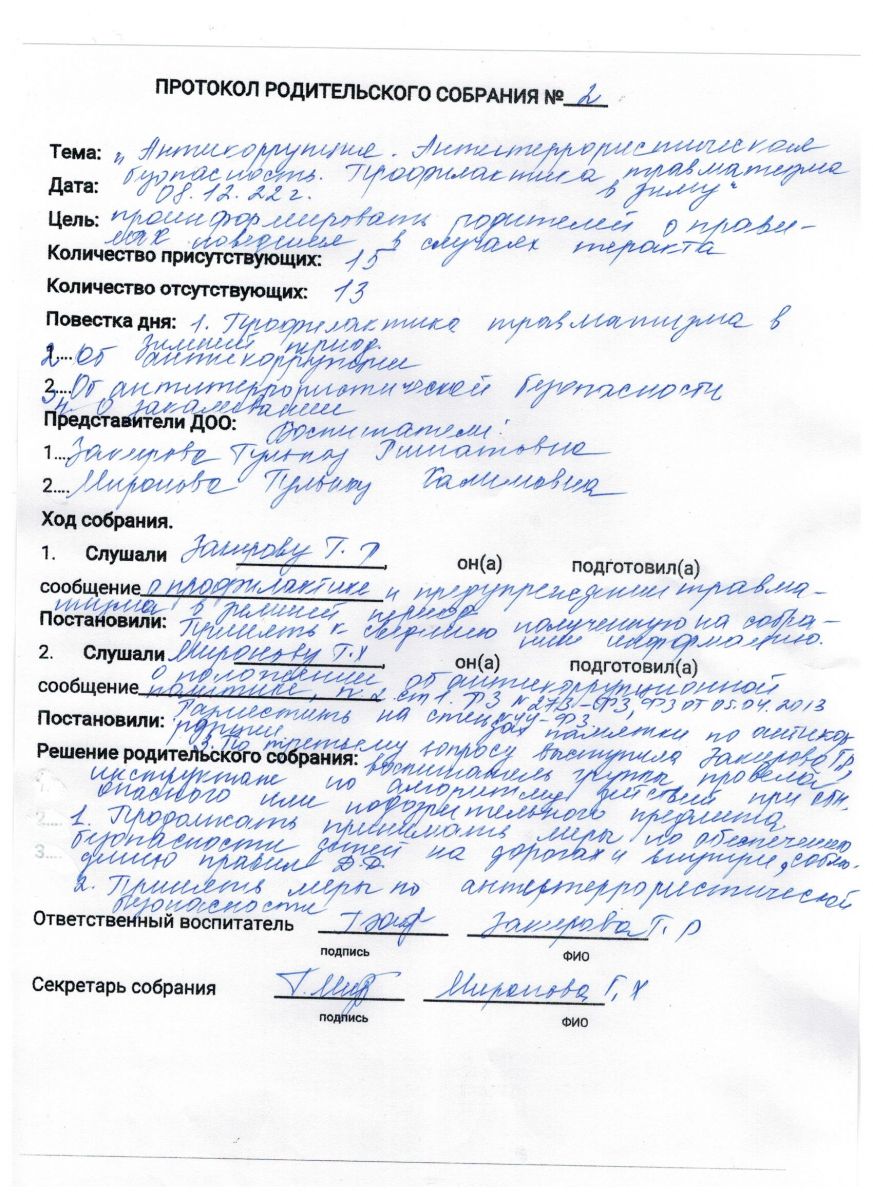 ПРОТОКОЛ РОДИТЕЛЬСКОГО СОБРАНИЯ № 2
Тема: „Антикоррупция. Антитеррористическая
безопасность. Профилактика травматизма
Дата: 08.12.22г. в зиму"
Цель: проинформировать родителей о прави-
лах поведения в случаях теракта
Количество присутствующих: 15
Количество отсутствующих: 13
Повестка дня: 1. Профилактика травматизма в
зимний период.
2.... От антикоррупции
2.... От антитеррористической безопасности
4. О закаливании
Представители ДОО: Воспитатели:
1.... Закирова Гульназ Ришатовна
2.... Миронова Гульназ Халимовна
Ход собрания.
1. Слушали Закирову Г. Р, он(а) подготовил(а)
сообщение о профилактике и предупреждении травма-
тизма в зимний период
Постановили: Принять к сведению полученную на собра-
нии информацию.
2. Слушали Миронову Г.Х, он(а) подготовил(а)
о положении об антикоррупционной
сообщение политике, п. 2 ст 1. ФЗ № 273-ФЗ, ФЗ от 05.04.2013
№44-ФЗ.
Постановили: Разместить на стендах памятки по антикор
рупции.
3. По третьему вопросу выступила Закирова Г.Р,
Решение родительского собрания: воспитатель группы, провела
инструктаж по алгоритму действий при обн.
опасного или подозрительного предмета
1. Продолжать принимать меры по обеспечению
безопасности детей на дорогах и внутри, соблю-
3.... дению правил ДД.
2. Принять меры по антитеррористической
безопасности
Ответственный воспитатель Закирова Г. Р
подпись ФИО
Секретарь собрания Г.Мир Миронова Г, Х
подпись ФИО